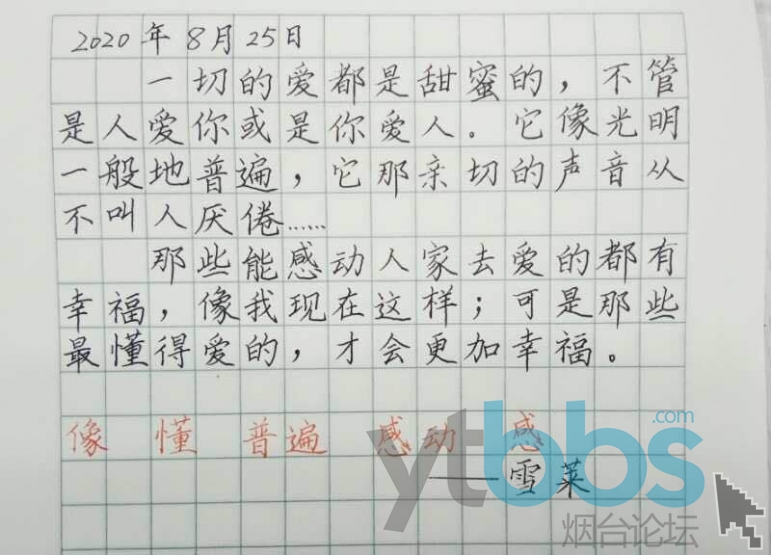 2020年8月25日
一切的爱都是甜蜜的，不管
是人爱你或是你爱人。它像光明
一般地普遍，它那亲切的声音从
不叫人厌倦……
那些能感动人家去爱的都有
幸福，像我现在这样；可是那些
最懂得爱的，才会更加幸福。
像 懂 普遍 感动 感
——雪莱
ytbbs.com
烟台论坛